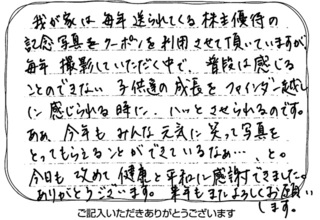 我が家は毎年送られてくる株主優待の
記念写真をクーポンを利用させて頂いていますが
毎年撮影していただく中で、普段は感じる
ことのできない子供達の成長をファインダー越し
に感じられる時に、ハッとさせられるのです。
ああ、今年もみんな元気に笑って写真を
とってもらえることができているなぁ…、と。
今日も改めて健康と平和に感謝できました。
ありがとうございます。来年もまたよろしくお願い
します。
ご記入いただきありがとうございます